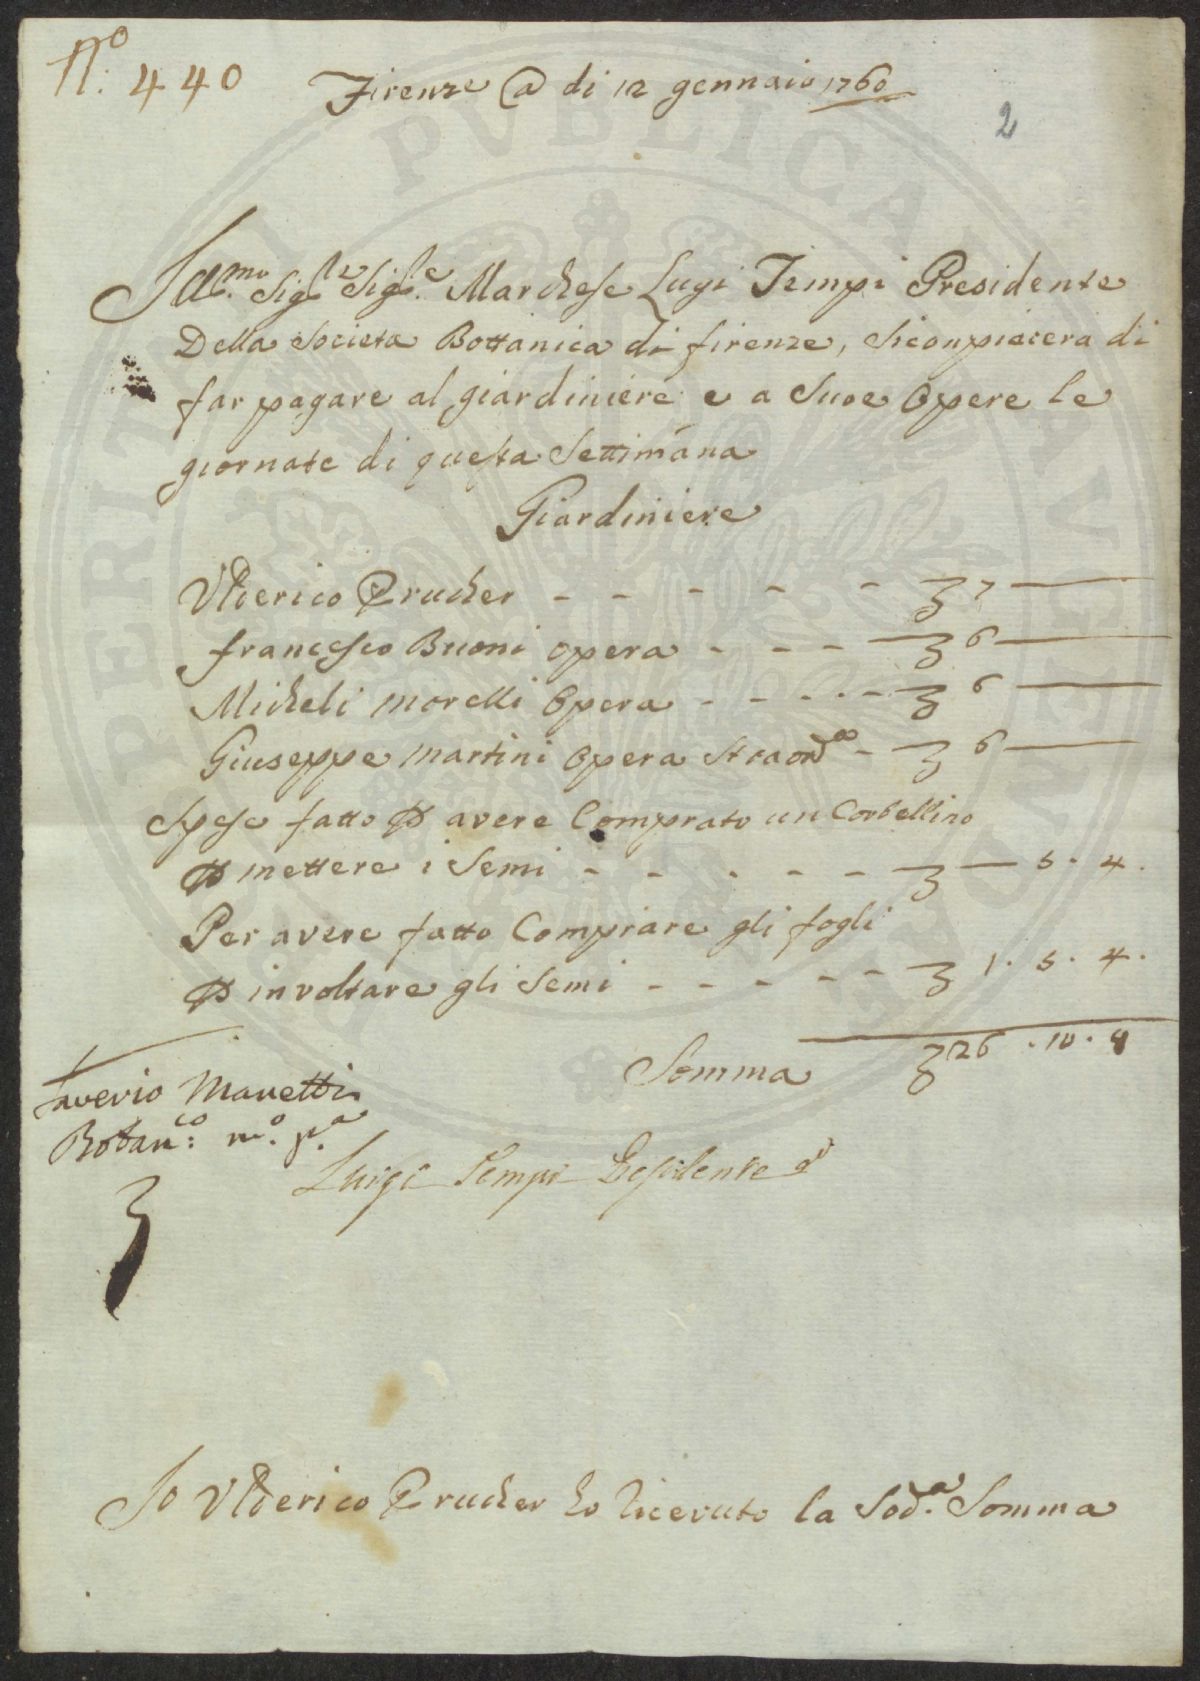 N.o 440
Firenze @ di 12 gennaio 1760
2
Ill.mo Sig.re Sig.re Marchese Lugi Tempi Presidente
Della Societa Bottanica di firenze, Siconpiacera di
far pagare al giardiniere e a Suoe Opere le
giornate di questa Settimana
Giardiniere
Ulderico Prucher - - - - - £ 7
francesco Buoni opera - - - £ 6
Micheli morelli Opera - - - - £ 6
Giuseppe martini Opera Straord.a - £ 6
Spese fatto p avere Comprato un Corbellino
p mettere i Semi - - - - - £ — 5. 4.
Per avere fatto Comprare gli fogli
p involtare gli Semi - - - - - £ 1. 5. 4.
Somma £ 26. 10. 8
Saverio Manetti
Botan.co m.o p.a
Luigi Tempi Presidente
Io Ulderico Prucher ho riceuto la Sod.a Somma